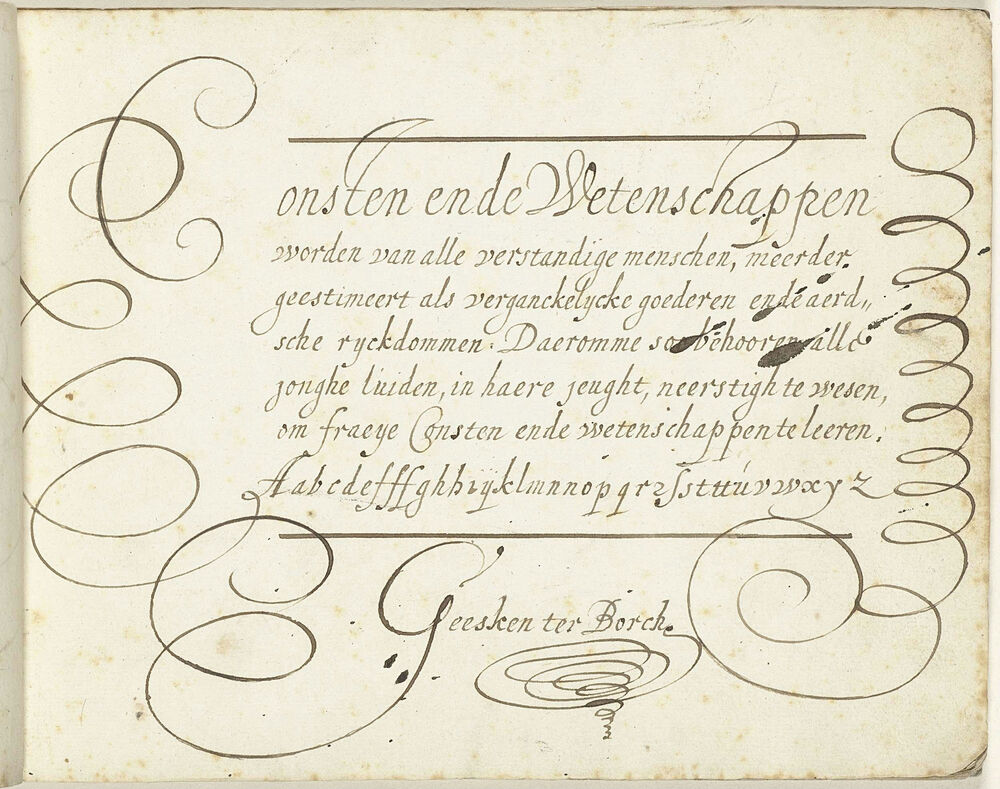 Consten ende Wetenschappen
worden van alle verstandige menschen, meerder
geestimeert als verganckelycke goederen ende aerd„
sche ryckdommen. Daeromme soo behooren alle
jonghe luiden, in haere jeught, neerstigh te wesen,
om fraeye Consten ende wetenschappen te leeren.
Aabcdefffghhiÿklmnnopqrzſsttuvwxyz
Geesken ter Borch.